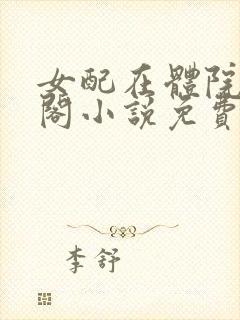 女配在體院
閣小説免費
李舒